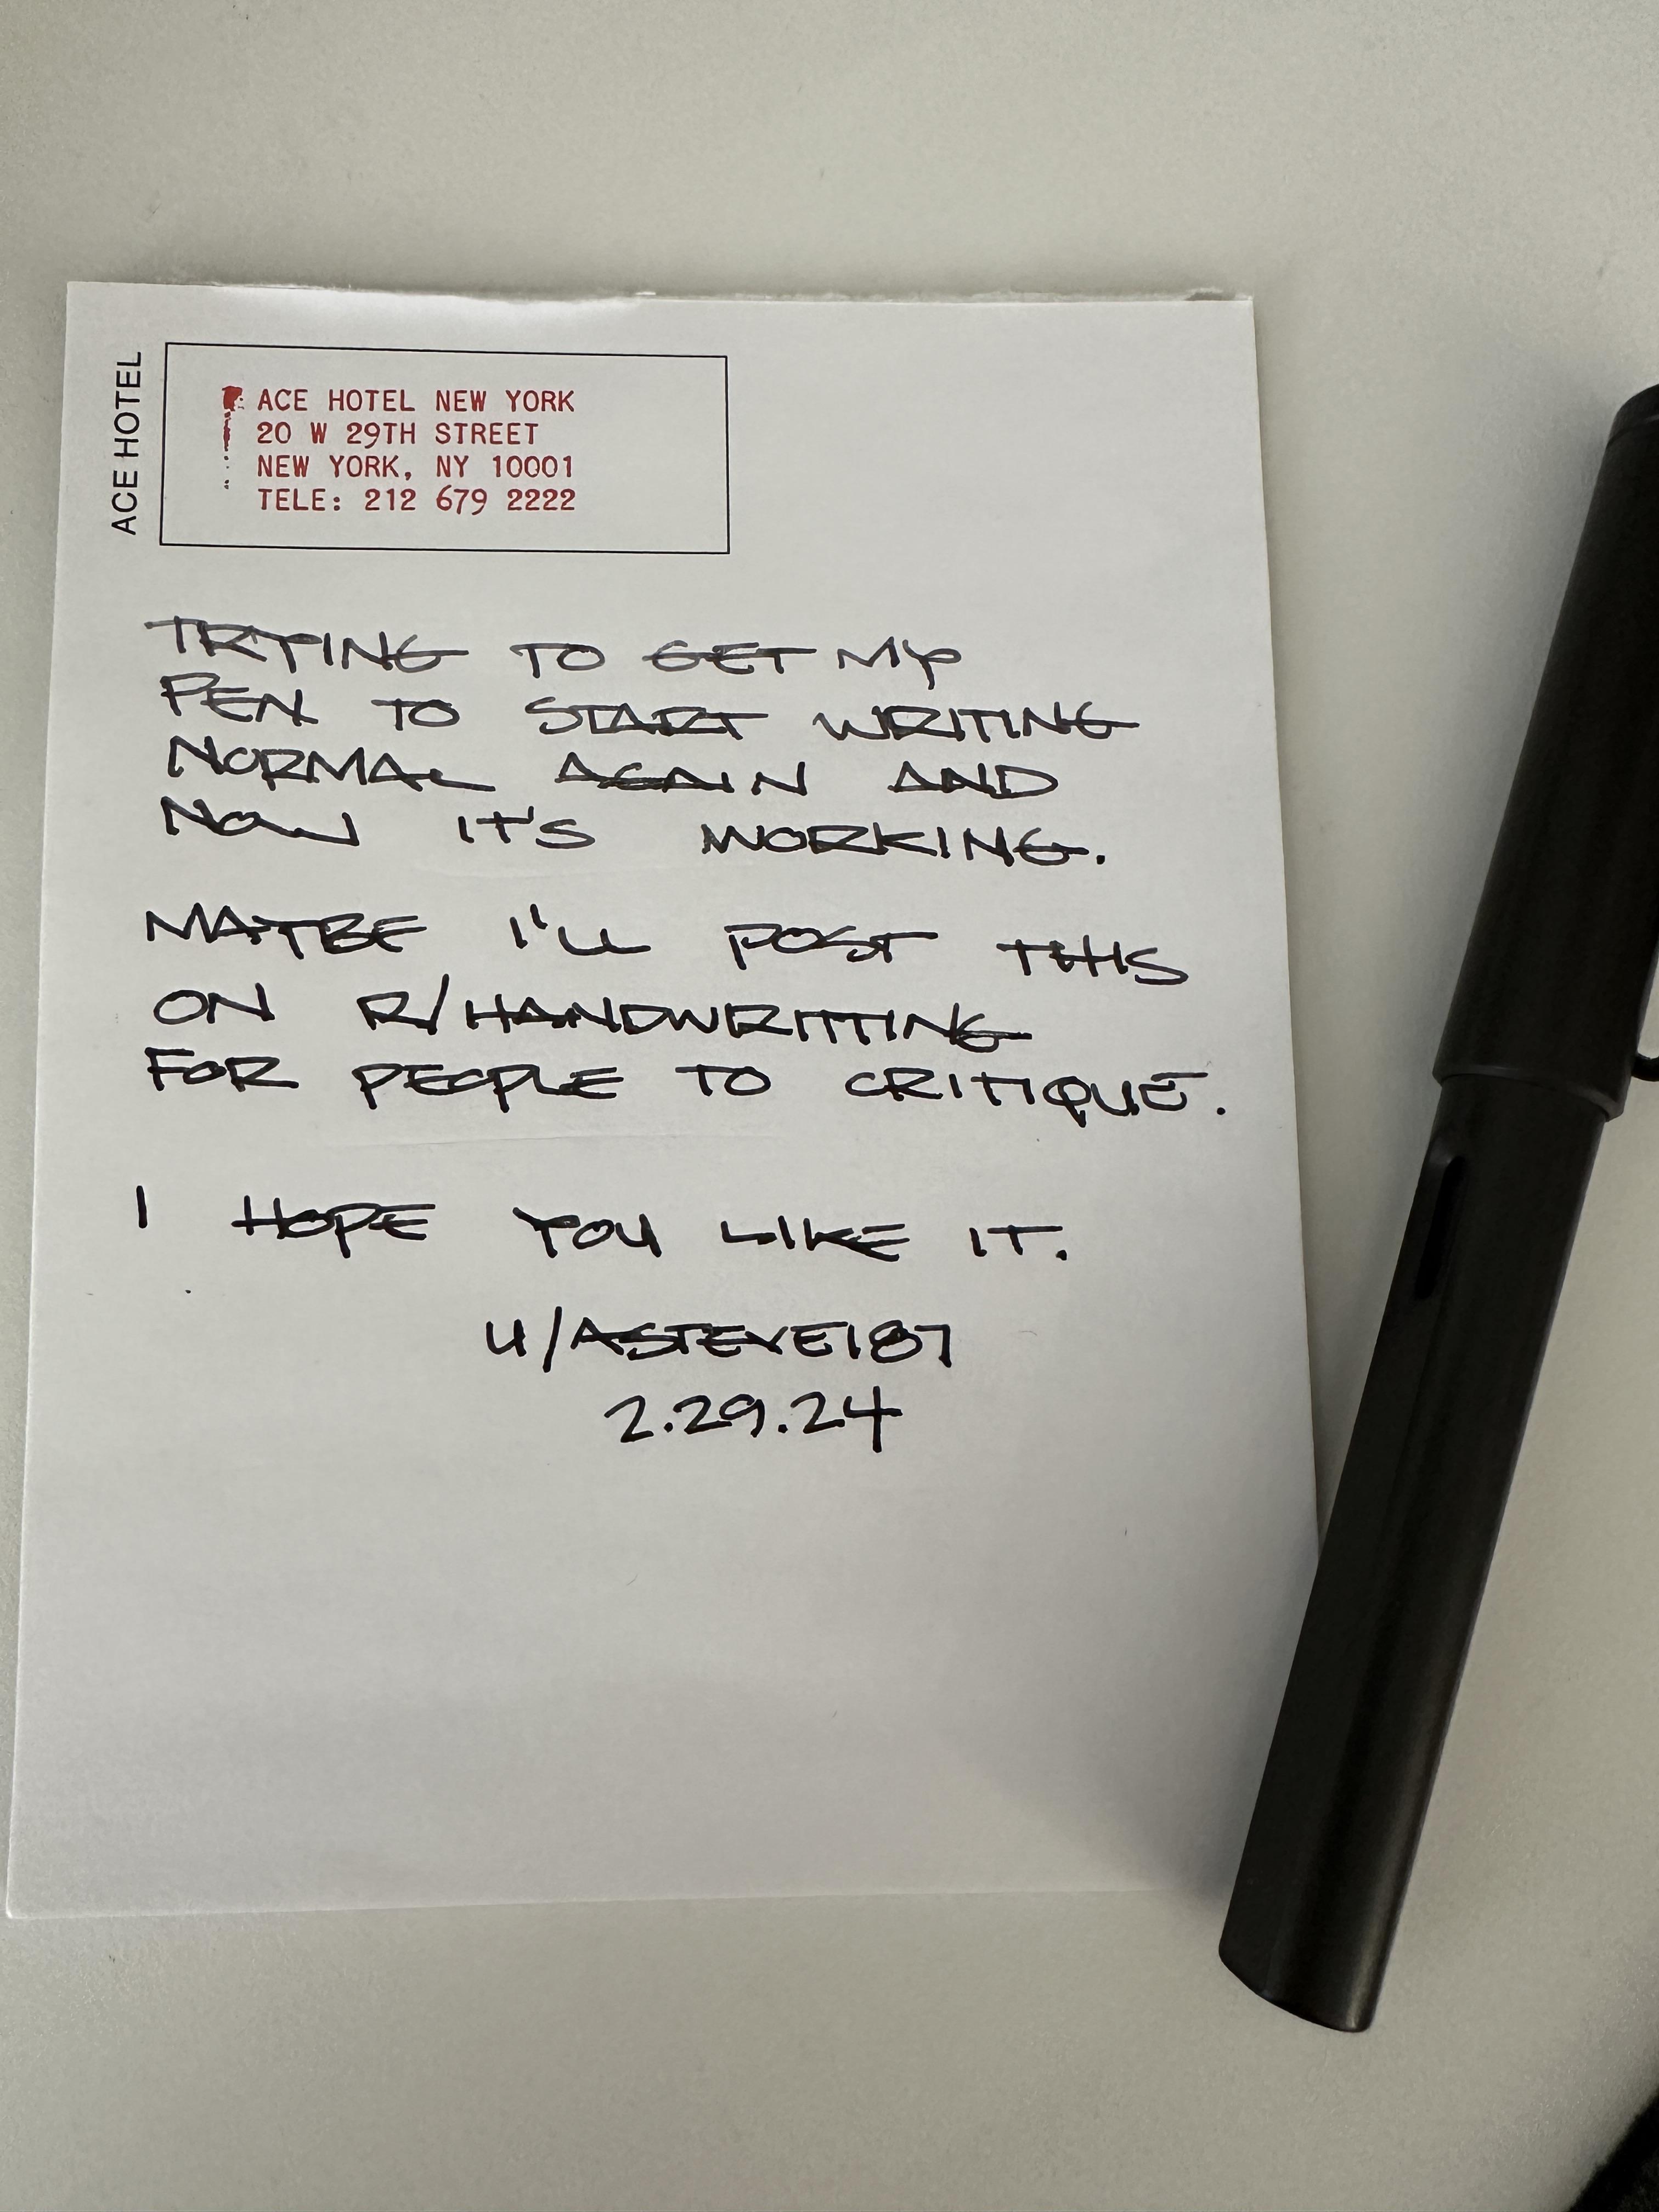 ACE HOTEL
ACE HOTEL NEW YORK
20 W 29TH STREET
NEW YORK, NY 10001
TELE: 212 679 2222
TRYING TO GET MY
PEN TO START WRITING
NORMAL AGAIN AND
NOW IT'S WORKING.
MAYBE I'LL POST THIS
ON R/HANDWRITTING
FOR PEOPLE TO CRITIQUE.
I HOPE YOU LIKE IT.
U/ASTEVE187
2.29.24